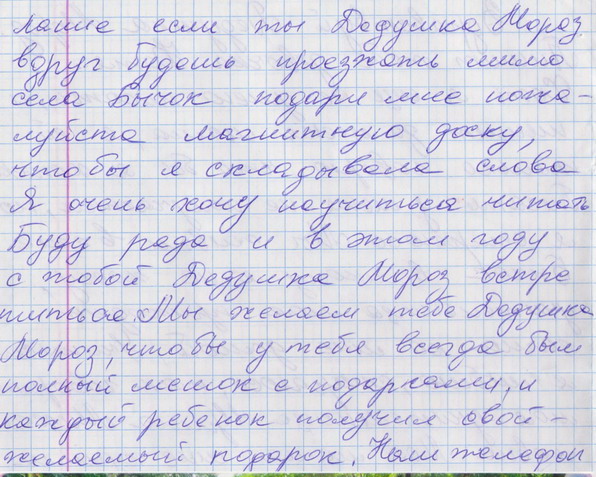 лание если ты Дедушка Мороз
вдруг будешь проезжать мимо
села Бычок подари мне пожа-
луйста магнитную доску,
чтобы я складывала слова
Я очень хочу научиться читать
Буду рада и в этом году
с тобой Дедушка Мороз встре
титься. Мы желаем тебе Дедушка
Мороз, чтобы у тебя всегда был
полный мешок с подарками, и
каждый ребенок получил свой -
желаемый подарок. Наш телефон